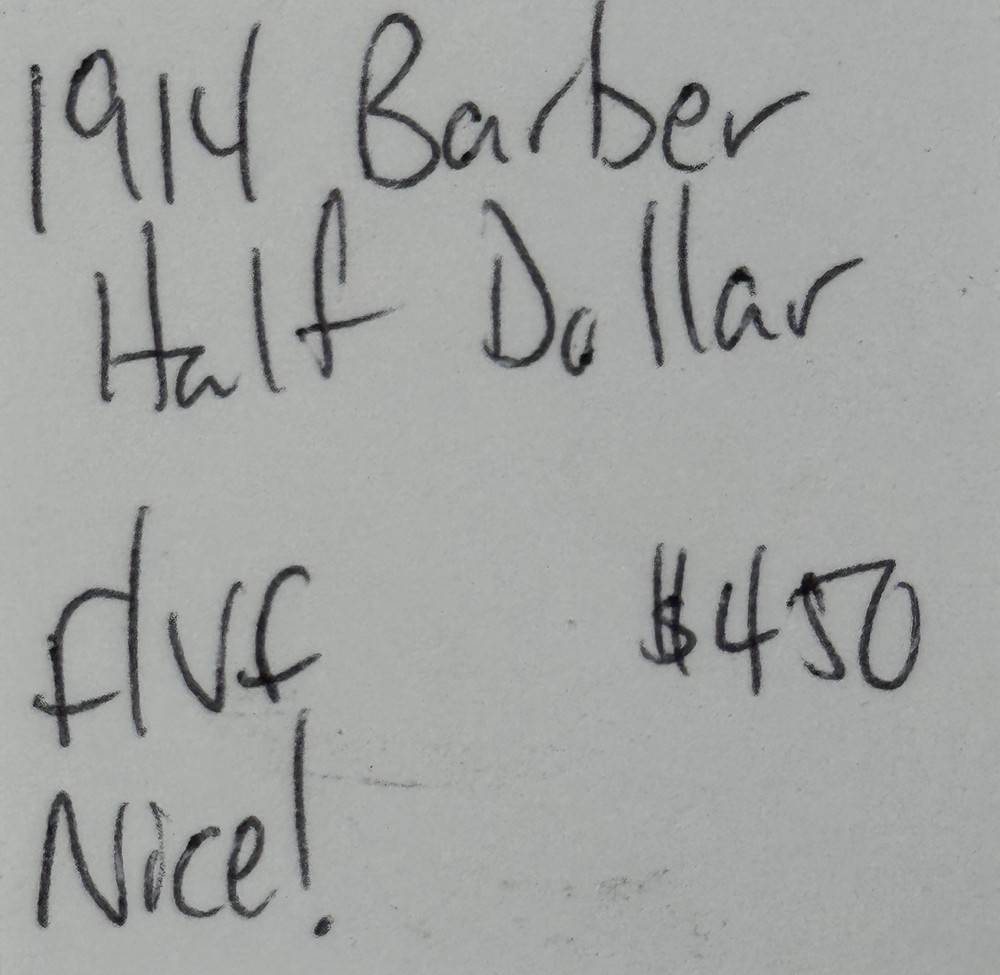 1914 Barber
Half Dollar
f/vf $450
Nice!